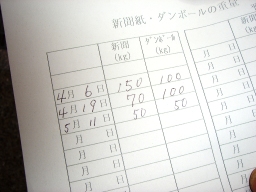 新聞紙・ダンボールの重量
新聞(kg) ダンボール(kg)
4月 6日 150 100
4月 19日 70 100
5月 11日 50 50
月 日
月 日
月 日
月 日
月 日
月 日
月 日
月 日
月 日
月 日